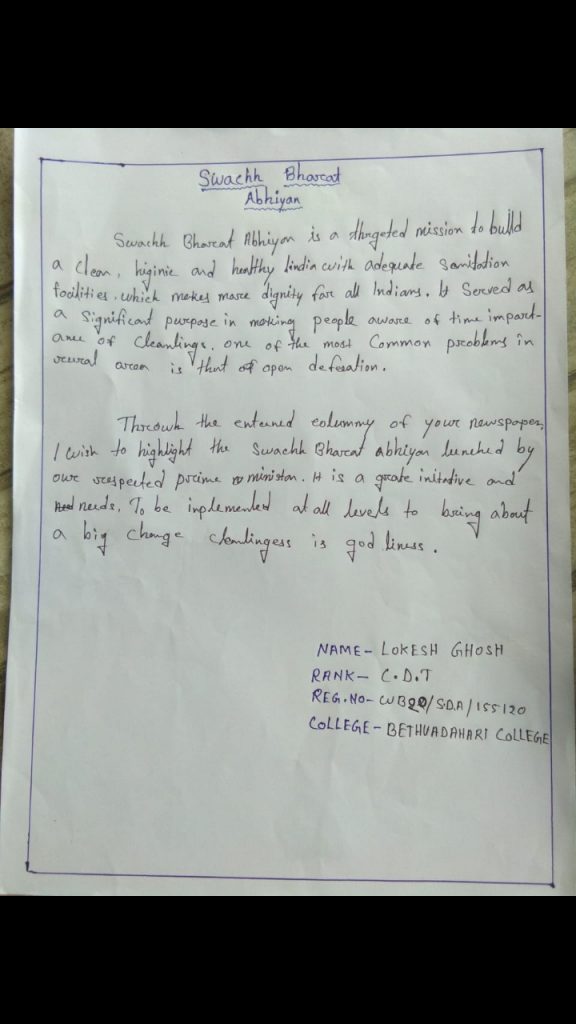 Swachh Bharat
Abhiyan
Swachh Bharat Abhiyan is a thrgeted mission to bulld
a clean, higinie and healthy lindia with adequate Sanitation
facilities. which makes more dignity for all Indians. It Served as
a significant purpose in making people aware of time import-
ance of Cleanlings. one of the most Common problems in
rural arean is that of open defesation.
Throwh the enterned colummy of your newspaper,
I wish to highlight the Swachh Bharat abhiyan lunched by
our respected prime ministan. It is a grate initative and
needs, To be inplemented at all levels to bring about
a big change clenlingess is god liness.
NAME- LOKESH GHOSH
RANK- C.D.T
REG.NO- WB20/SDA/155120
COLLEGE- BETHUADAHARI COLLEGE